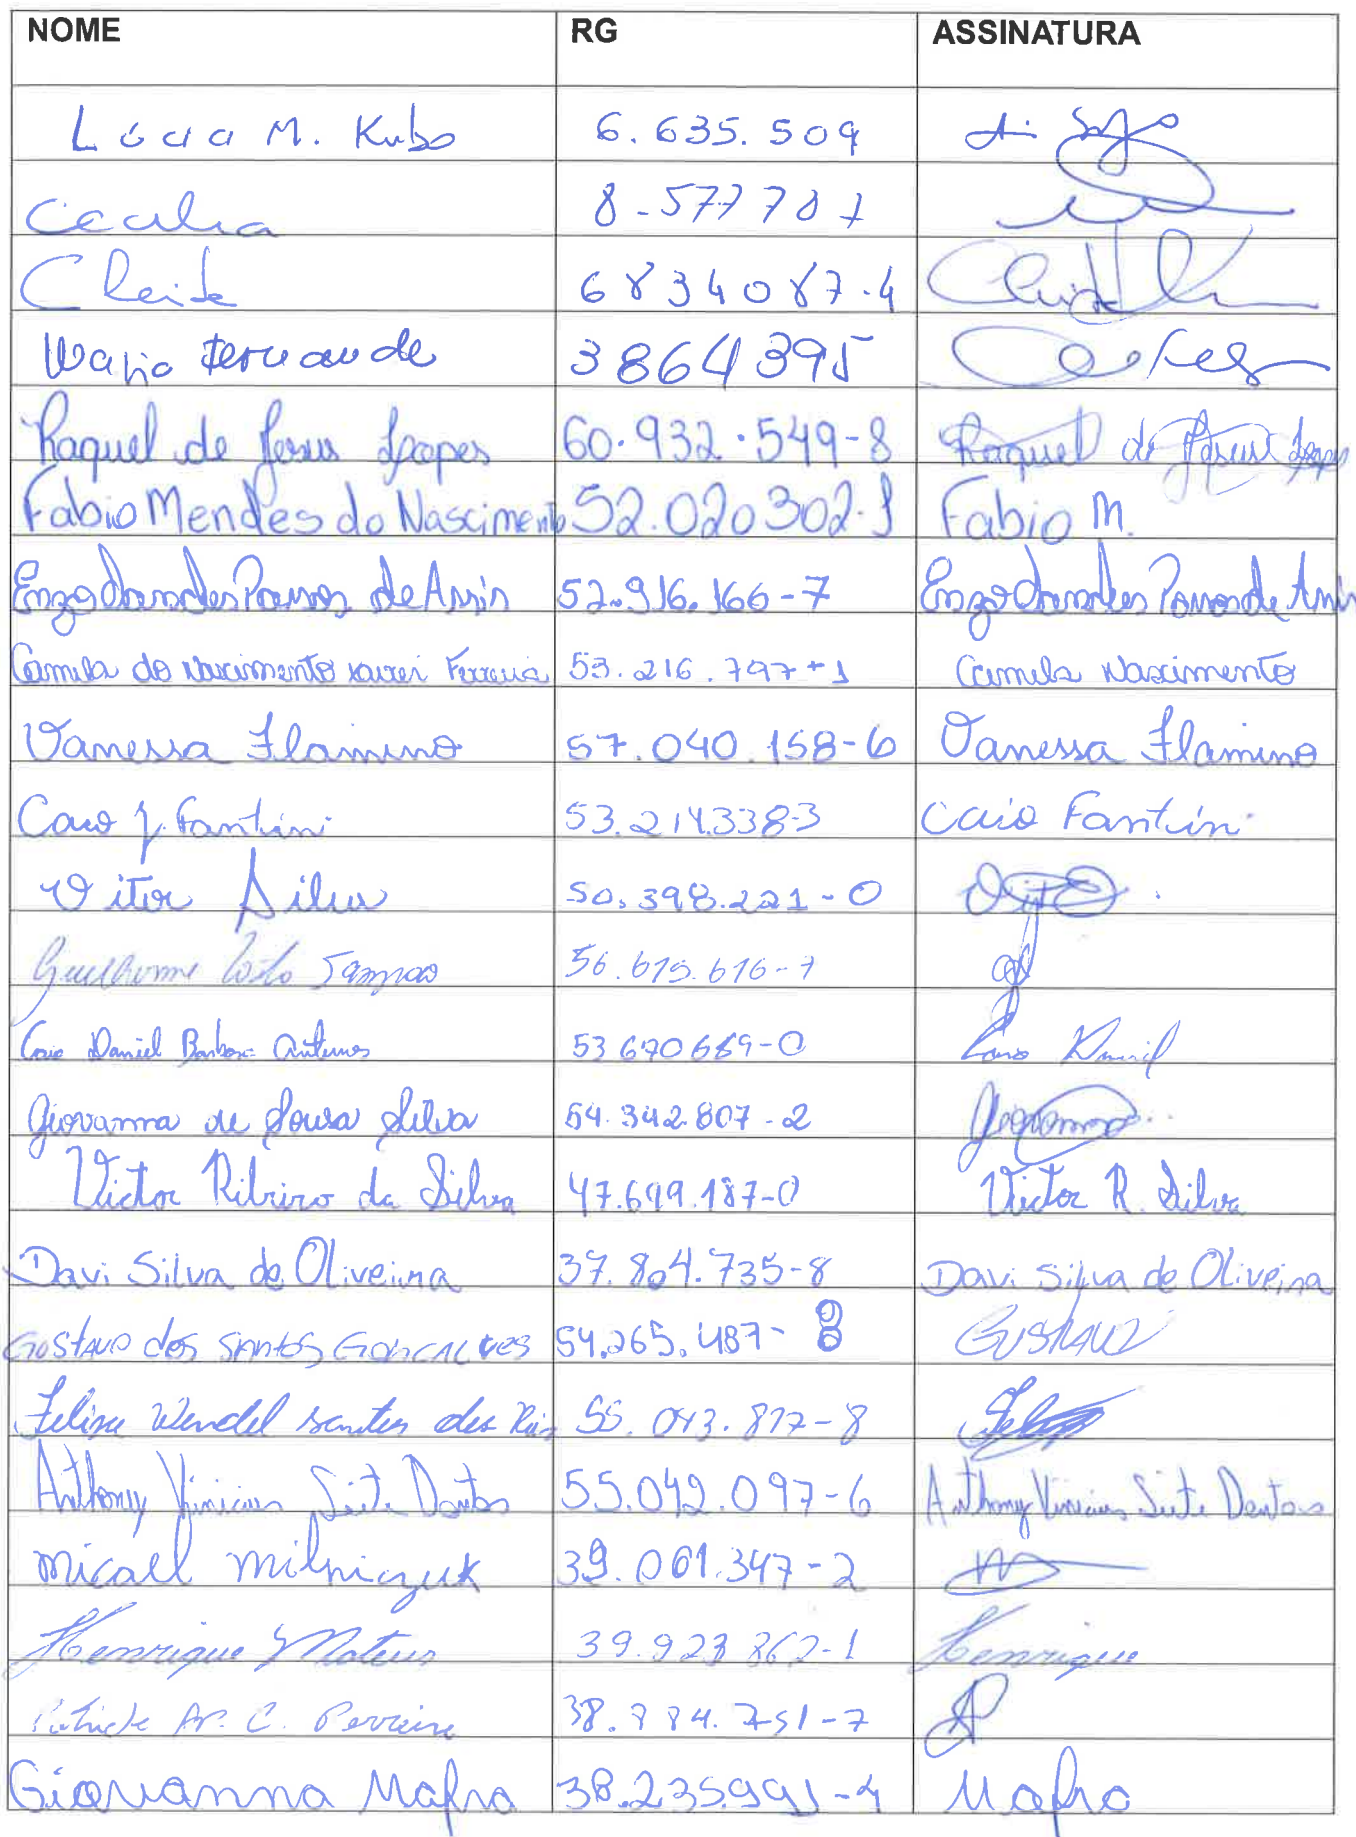 NOME RG ASSINATURA
Lúcia M. Kubo 6.635.509
Cecilia 8-577 707
Cleide 6834087-4
Maria Fernande 3864395
Raquel de Jesus Lopes 60.932.549-8 Raquel de Jesus Lopes
Fabio Mendes do Nascimento 52.020302-1 Fabio M.
Enzo Ramos de Assis 52.916.166-7 Enzo Ramos de Assis
Camila do Nascimento Ferreira 53.216.797-1 Camila Nascimento
Vanessa Flamino 57.040.158-6 Vanessa Flamino
Caio J. Fantini 53.214.338-3 Caio Fantini
Vitor Silva 50.398.221-0
Guilherme Sampaio 56.675.616-7
Caio Daniel Barbosa Antunes 53670669-0 Caio Daniel
Giovanna de Sousa Silva 54.342.807-2 Giovanna
Victor Ribeiro da Silva 47.699.187-0 Victor R. Silva
Davi Silva de Oliveira 37.804.735-8 Davi Silva de Oliveira
Gustavo dos Santos Goncalves 54.265.487-8 Gustavo
Felipe Wendel Santos dos Reis 55.043.877-8
Anthony Vinicius Leite Dantas 55.042.097-6 Anthony Vinicius Leite Dantas
Micall Milniczuk 39.061.347-2
Henrique Mateus 39.923 862-1 Henrique
Ap. C. Perreira
Giovanna Mafra 38.235991-4 Mafra